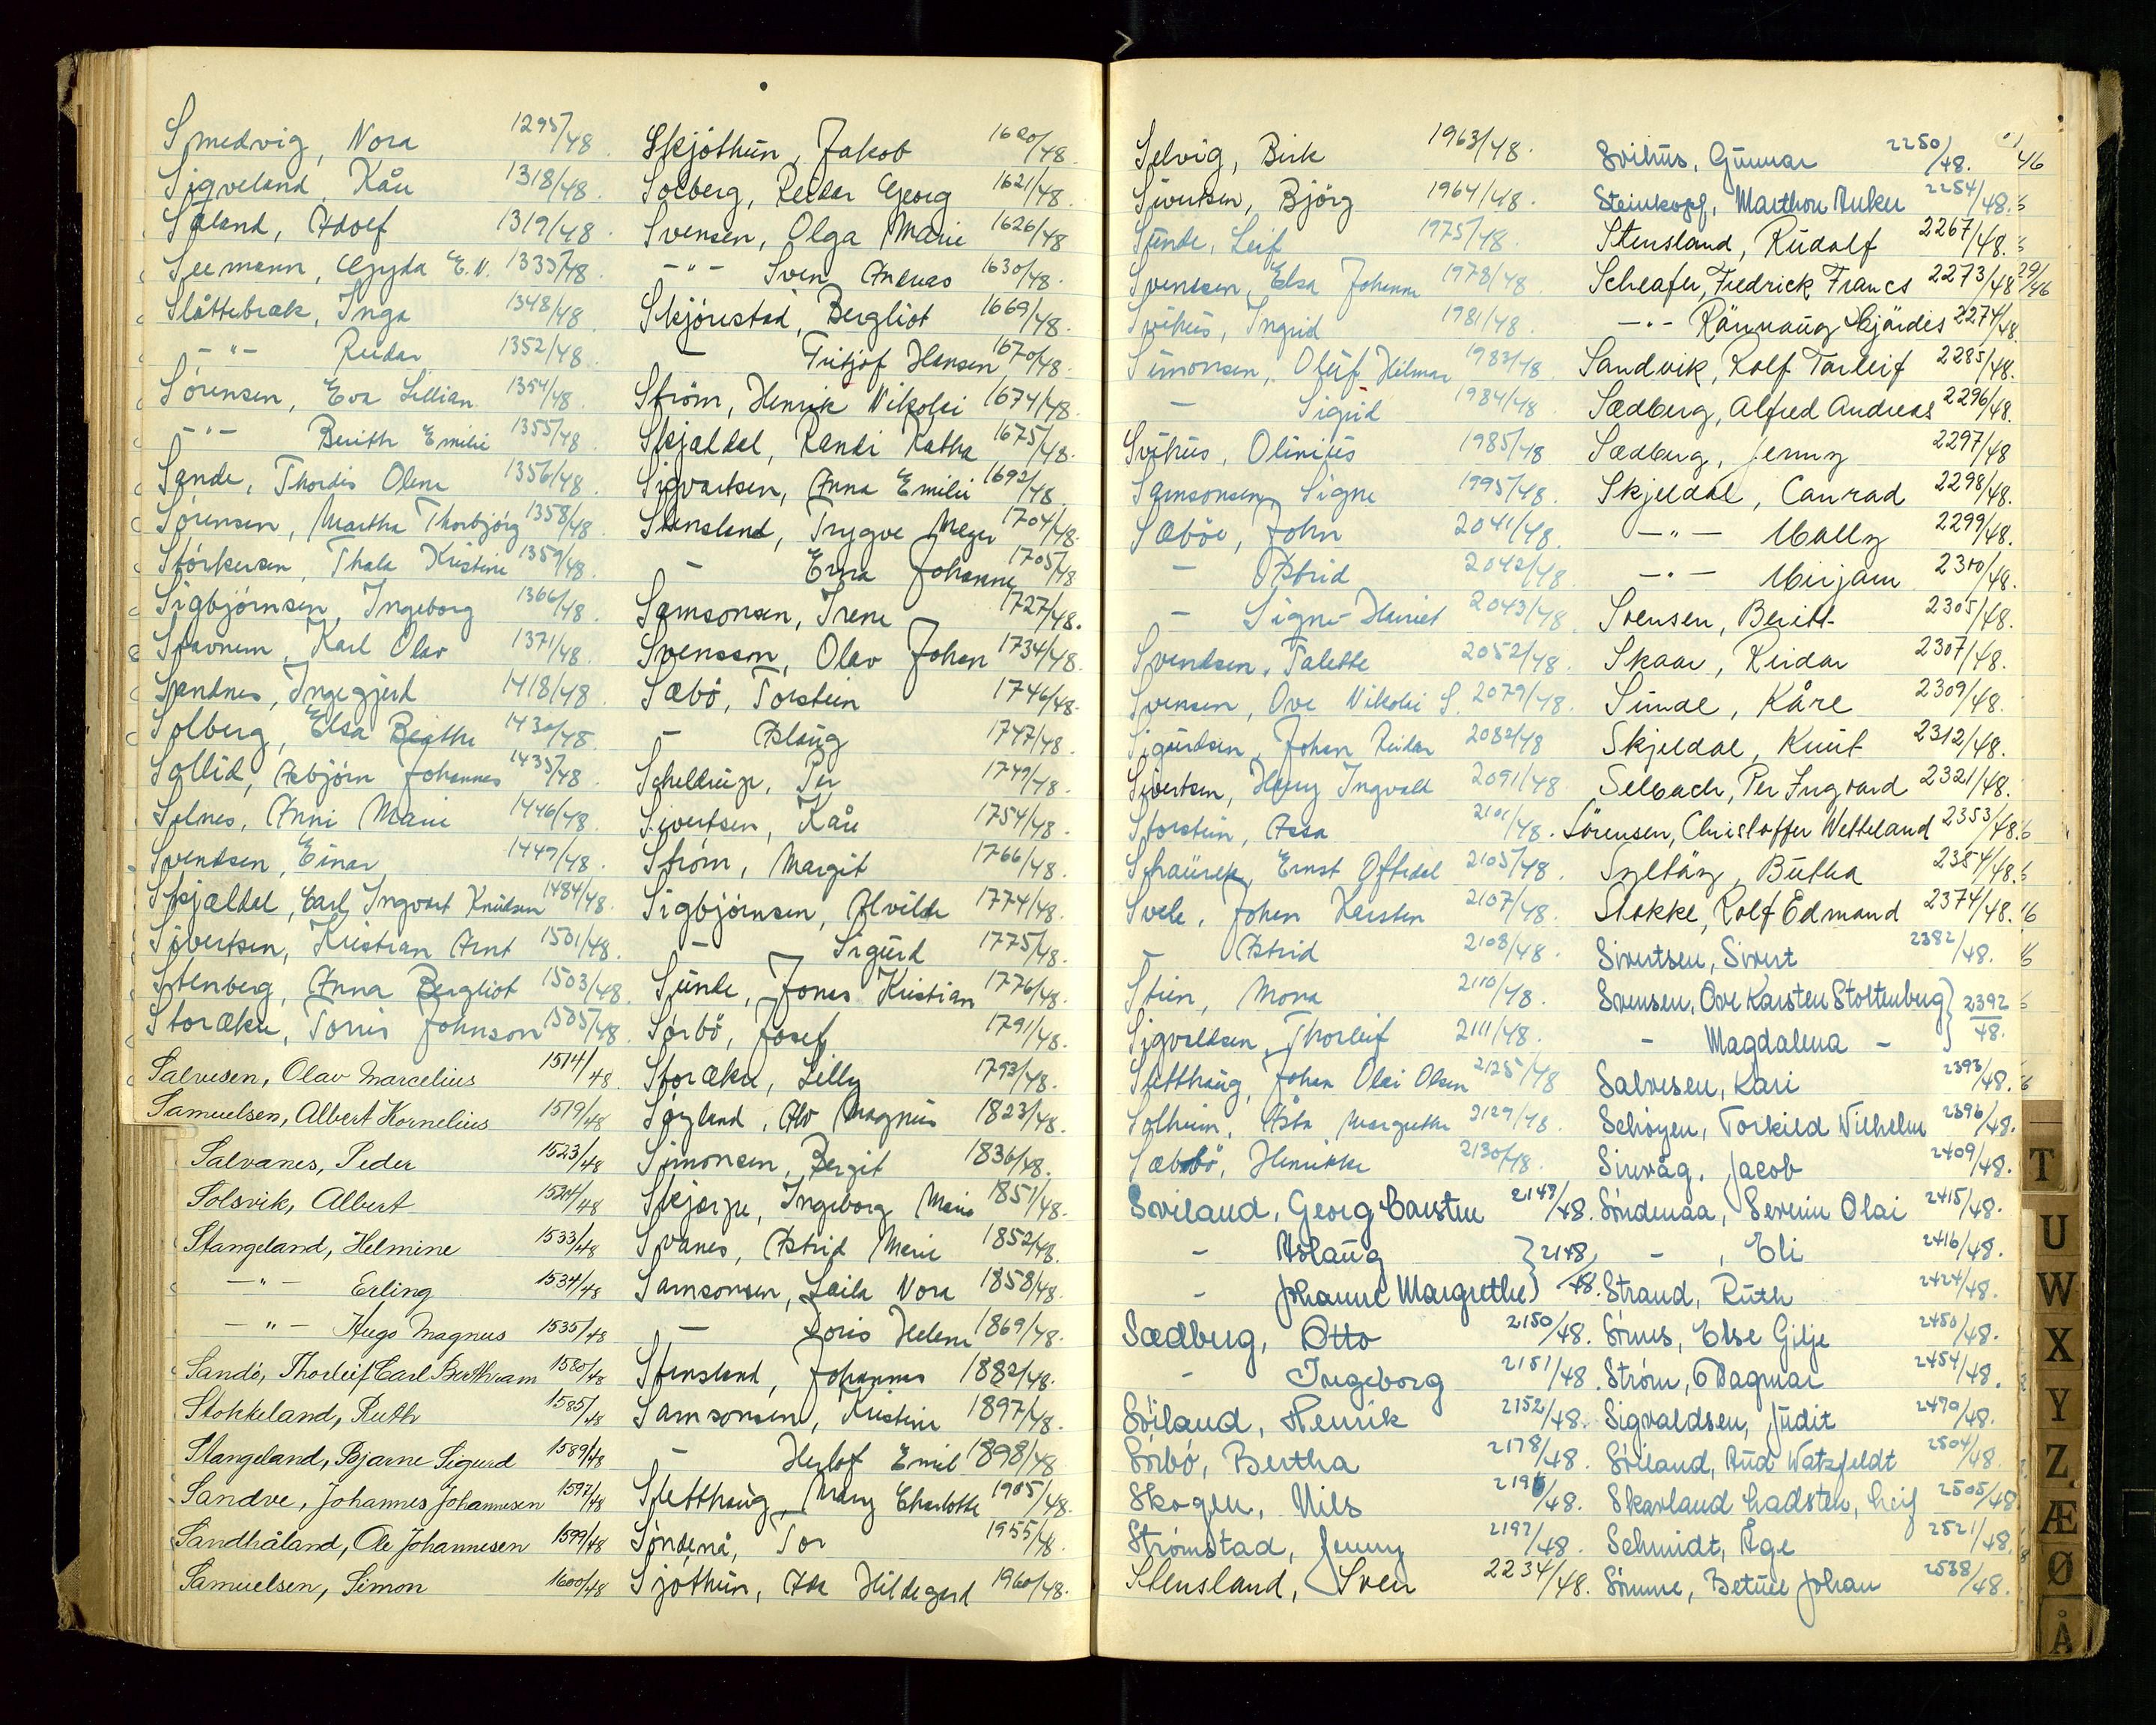 Smedvig, Nora 1295/48
Sigveland, Kåre 1318/48.
Såland, Adolf 1319/48.
Seemann, Gyda E.N. 1335/48
Slåttebrak, Inga 1348/48
-"- Reidar 1352/48.
Sörensen, Eva Lillian 1354/48.
-"- Berith Emilie 1355/48.
Sande, Thordis Olene 1356/48.
Sörensen, Martha Thorbjörg 1358/48
Störkersen, Thala Kristine 1359/48.
Sigbjörnsen, Ingeborg 1366/48.
Stavnem, Karl Olav 1371/48.
Sandnes, Ingegjerd 1418/48
Solberg, Elsa Beathe 1430/48.
Sollid, Asbjörn Johannes 1435/48.
Selnes, Anni Marie 1446/48.
Svendsen, Einar 1449/48.
Skjældal, Carl Ingvart Knudsen 1484/48.
Sivertsen, Kristian Arnt 1501/48.
Stenberg, Anna Bergliot 1503/48.
Storæker, Tomis Johnson 1505/48.
Salvesen, Olav Marcelius 1514/48.
Samuelsen, Albert Kornelius 1519/48
Salvanes, Peder 1523/48
Solsvik, Albert 1524/48
Stangeland, Helmine 1533/48
-"- Erling 1534/48
-"- Hugo Magnus 1535/48
Sandö, Thorleif Carl Berthram 1580/48
Stokkeland, Ruth 1585/48
Stangeland, Bjarne Sigurd 1589/48
Sandve, Johannes Johannesen 1597/48
Sandhåland, Ole Johannesen 1599/48
Samuelsen, Simon 1600/48
Skjöthun, Jakob 1620/48.
Solberg, Reidar Georg 1621/48.
Svensen, Olga Marie 1626/48
-"- Sven Andreas 1630/48.
Skjörestad, Bergliot 1669/48.
- Fritjof Hansen 1670/48.
Ström, Henrik Nikolai 1674/48.
Skjaldal, Randi Katha 1675/48.
Sigvartsen, Anna Emilie 1692/48.
Stensland, Trygve Meyer 1704/48.
- Erna Johanne 1705/48
Samsonsen, Irene 1727/48.
Svensson, Olav Johan 1734/48.
Sæbö, Torstein 1746/48.
- Aslaug 1747/48.
Scheldrup, Per 1749/48.
Sivertsen, Kåre 1754/48.
Ström, Margit 1766/48.
Sigbjörnsen, Alvilde 1774/48.
- Sigurd 1775/48.
Sunde, Jonas Kristian 1776/48.
Sörbö, Josef 1791/48.
Storæker, Lilly 1793/48.
Söyland, Alv Magnus 1823/48.
Simonsen, Bergit 1836/48.
Skjerpe, Ingeborg Marie 1851/48.
Svanes, Astrid Marie 1852/48.
Samsonsen, Laila Nora 1858/48.
- Doris Helene 1869/48.
Stensland, Johannes 1882/48.
Samsonsen, Kristine 1897/48.
- Herlof Emil 1898/48
Sletthaug, Mary Charlotte 1905/48.
Söndenå, Tor 1955/48.
Sjöthun, Ada Hildegard 1960/48.
Selvig, Birk 1963/48.
Sivertsen, Björg 1964/48.
Sunde, Leif 1975/48.
Svendsen, Elsa Johanne 1978/48
Svihus, Ingrid 1981/48.
Simonsen, Oluf Hilmar 1983/48
- Sigrid 1984/48
Svihus, Olinius 1985/48
Samsonsen, Signe 1995/48.
Sæböe, John 2041/48.
- Astrid 2042/48
- Signe Harriet 2043/48
Svendsen, Talette 2052/48.
Svensen, Ove Nikolai S. 2079/48.
Sigurdsen, Johan Reidar 2082/48
Sivertsen, Harry Ingvald 2091/48
Storstein, Assa 2101/48.
Schaurek, Ernst Oftedal 2105/48.
Svele, Johan Karsten 2107/48.
- Astrid 2108/48.
Stien, Mona 2110/48.
Sigvaldsen, Thorleif 2111/48.
Sletthaug, Johan Olai Olsen 2125/48
Solheim, Åsta Margrethe 2129/48.
Sæbbö, Henrikke 2130/48.
Sviland, Georg Carsten 2147/48.
- Aslaug } 2148/48.
- Johanne Margrethe
Sædberg, Otto 2150/48.
- Ingeborg 2151/48.
Söiland, Henrik 2152/48.
Sörbö, Bertha 2178/48.
Skogen, Nils 2196/48.
Strömstad, Jenny 2197/48.
Stensland, Sven 2234/48.
Svihus, Gunnar 2250/48. 46
Steinkopf, Marthon Anker 2254/48.
Stensland, Rudolf 2267/48.
Scheafer, Fredrick Francs 2273/48 29/46
-"- Rannaug Hjärdes 2274/48.
Sandvik, Rolf Tarleif 2285/48.
Sædberg, Alfred Andreas 2296/48.
Sædberg, Jenny 2297/48
Skjeldal, Conrad 2298/48.
-"- Mally 2299/48.
-"- Mirjam 2300/48.
Svensen, Beritt 2305/48.
Skaar, Reidar 2307/48.
Sunde, Kåre 2309/48.
Skjeldal, Knut 2312/48.
Selbach, Per Ingvard 2321/48.
Sörensen, Christoffer Wetteland 2353/48.
Syltöy, Butha 2354/48.
Stokke, Rolf Edmond 2374/48.
Sivertsen, Sivert 2382/48.
Svensen, Ove Karsten Stoltenberg } 2392/48.
- Magdalena -
Salvesen, Kari 2393/48.
Schöyen, Torkild Wilhelm 2396/48.
Sirevåg, Jacob 2409/48.
Söndenaa, Severin Olai 2415/48.
-, Eli 2416/48.
Strand, Ruth 2424/48.
Sömes, Else Gilje 2450/48.
Ström, Dagmar 2454/48.
Sigvaldsen, Judit 2470/48.
Söiland, Aud Watzfeldt 2504/48.
Skarland Ladsten, Leif 2505/48
Schmidt, Åge 2521/48.
Sömme, Betuel Johan 2538/48.
T
U
W
X
Y
Z
Æ
Ø
Å